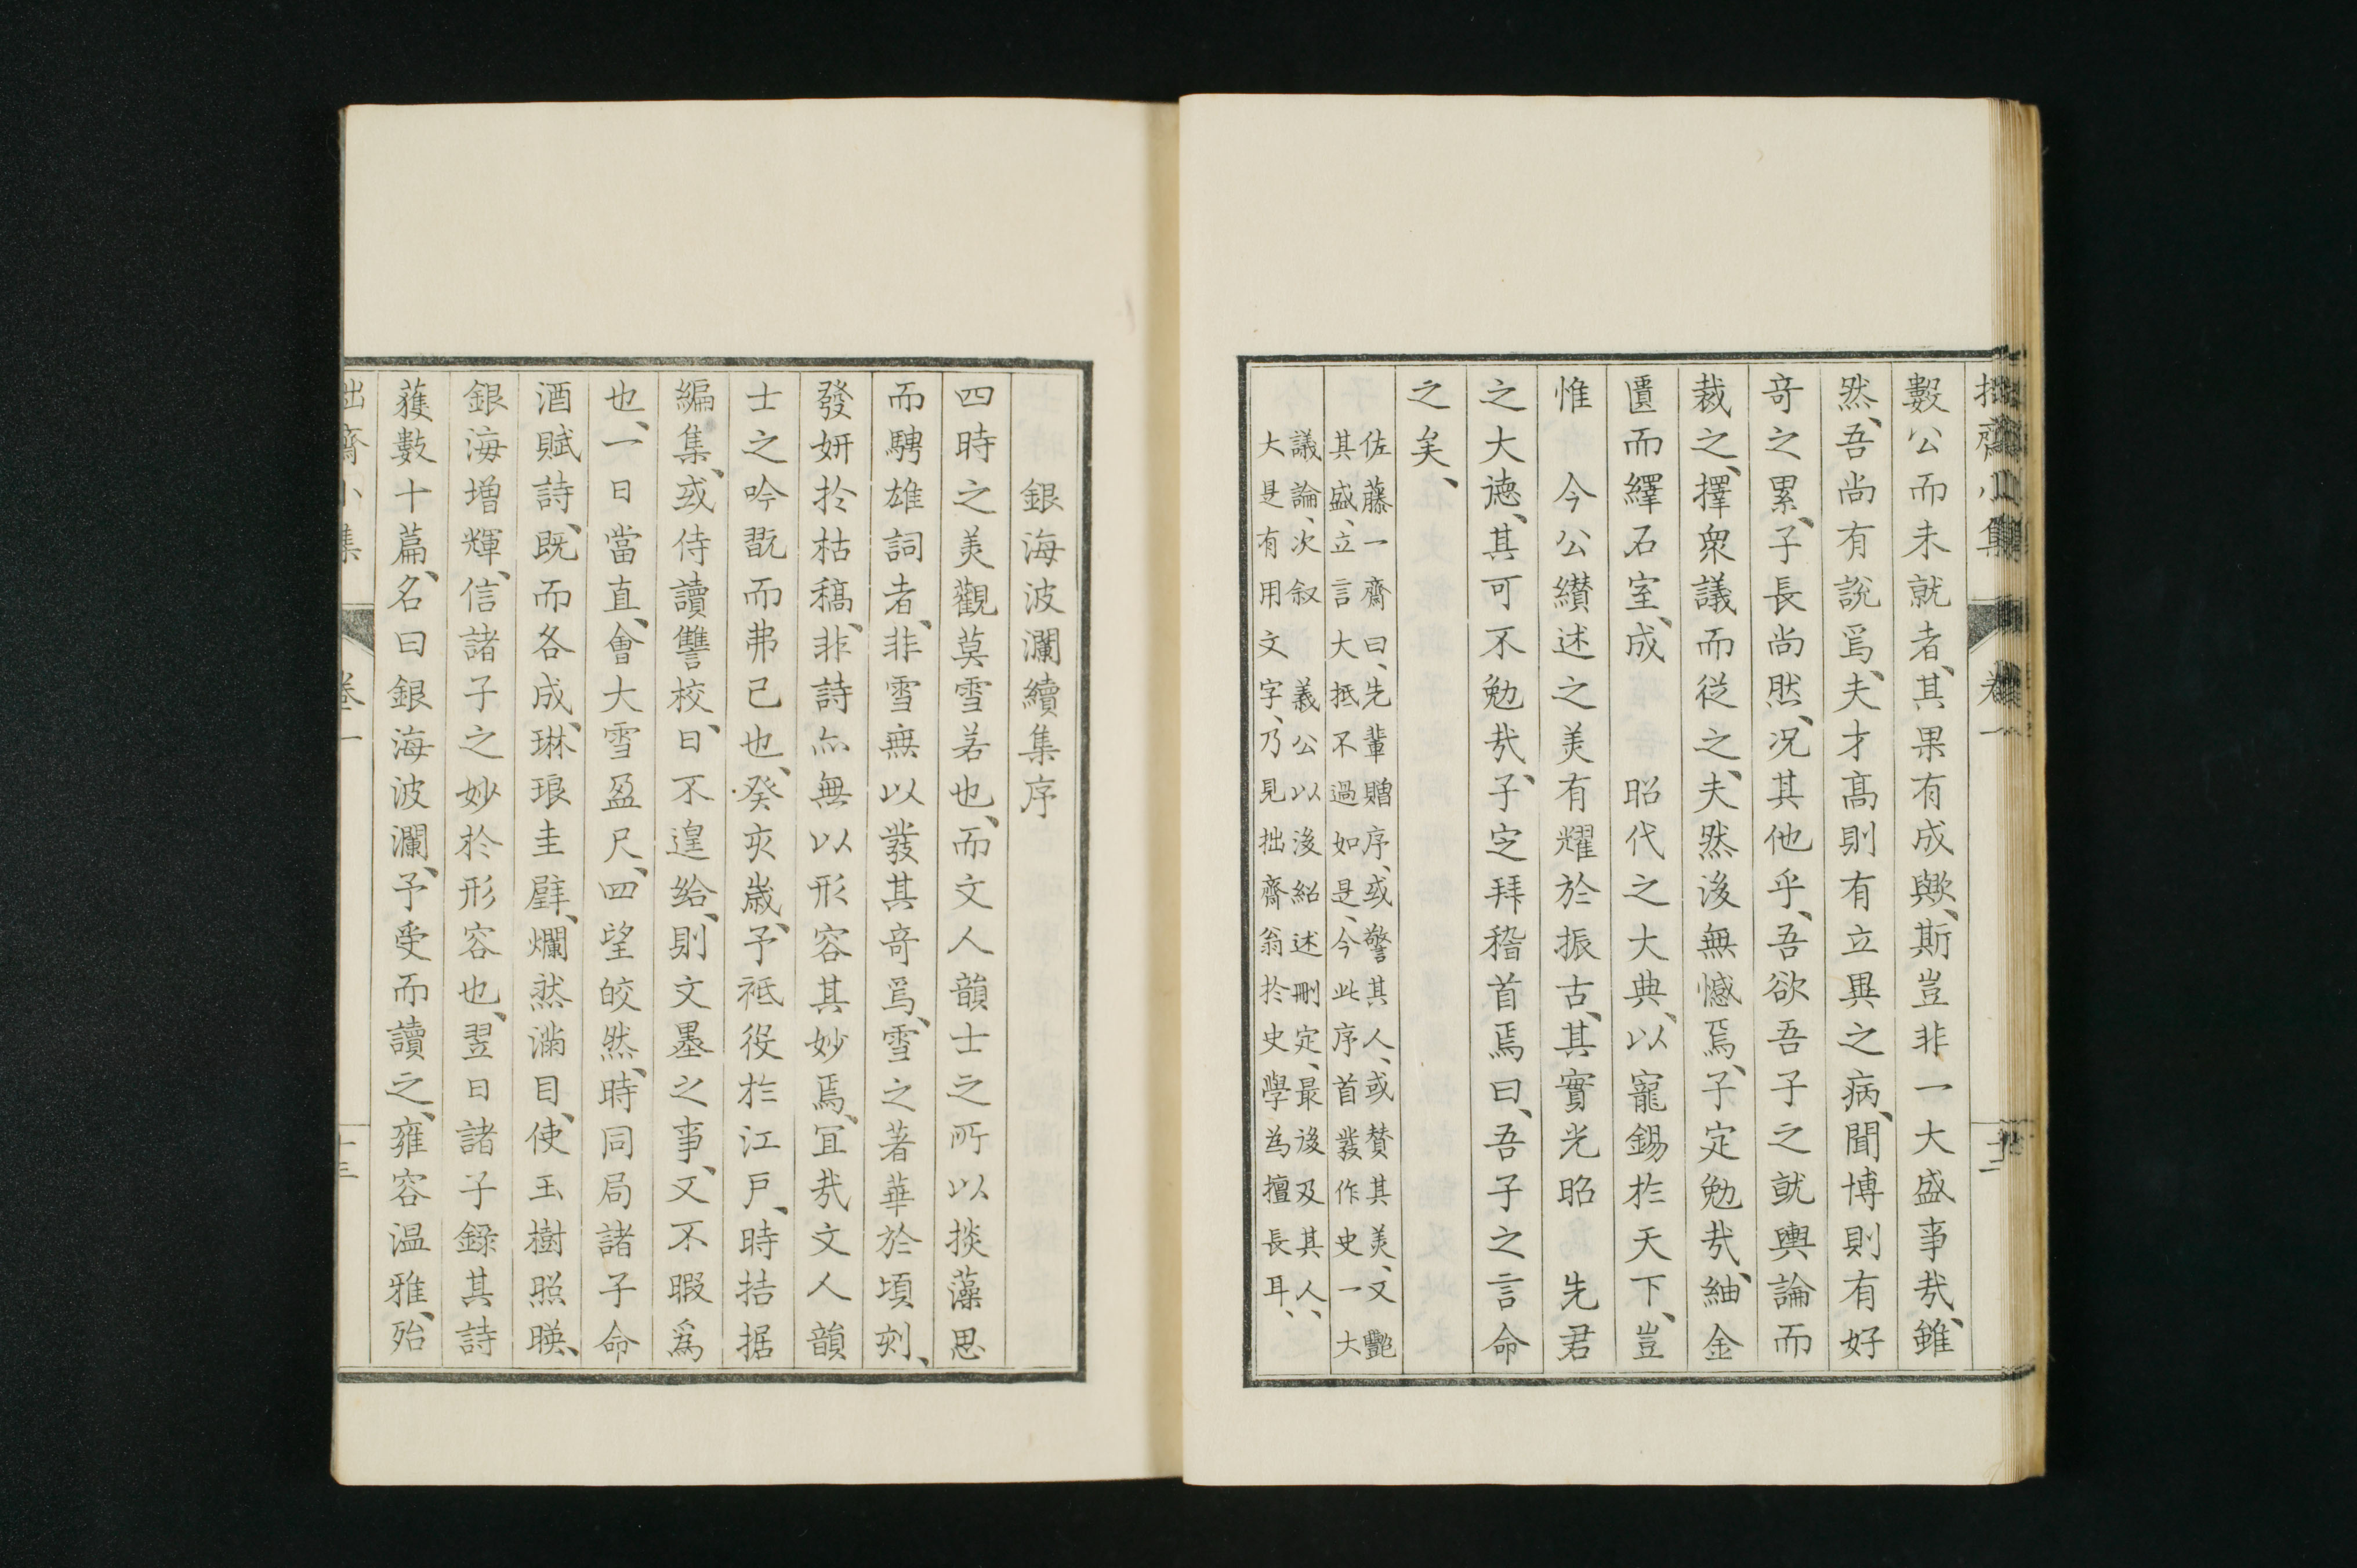 拙齋小集 卷一 十二
數公而未就者、其果有成歟、斯豈非一大盛事哉、雖
然、吾尚有說焉、夫才高則有立異之病、聞博則有好
奇之累、子長尚然、况其他乎、吾欲吾子之就輿論而
裁之、擇衆議而從之、夫然後無憾焉、子定勉哉、紬金
匱而繹石室、成 昭代之大典、以寵錫於天下、豈
惟 今公纉述之美有耀於振古、其實光昭 先君
之大德、其可不勉哉、子定拜稽首焉曰、吾子之言命
之矣、
佐藤一齋曰、先輩贈序、或警其人、或賛其美、又艷
其盛、立言大抵不過如是、今此序首發作史一大
議論、次叙 義公以後紹述刪定、最後及其人、
大是有用文字、乃見拙齋翁於史學為擅長耳、
銀海波瀾續集序
四時之美觀莫雪若也、而文人韻士之所以掞藻思
而騁雄詞者、非雪無以發其奇焉、雪之著華於頃刻、
發妍於枯稿、非詩亦無以形容其妙焉、宜哉文人韻
士之吟翫而弗已也、癸亥歲、予祗役於江戶、時拮据
編集、或侍讀讐校、日不遑給、則文墨之事、又不暇爲
也、一日當直、會大雪盈尺、四望皎然、時同局諸子命
酒賦詩、既而各成、琳琅圭璧、爛然滿目、使玉樹照暎、
銀海增輝、信諸子之妙於形容也、翌日諸子錄其詩
蒦數十篇、名曰銀海波瀾、予受而讀之、雍容温雅、殆
拙齋小集 卷一 十三